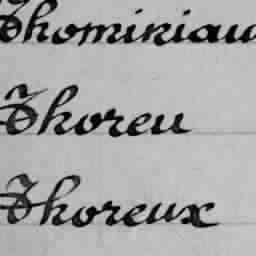 Thominiau
Thoreu
Thoreux